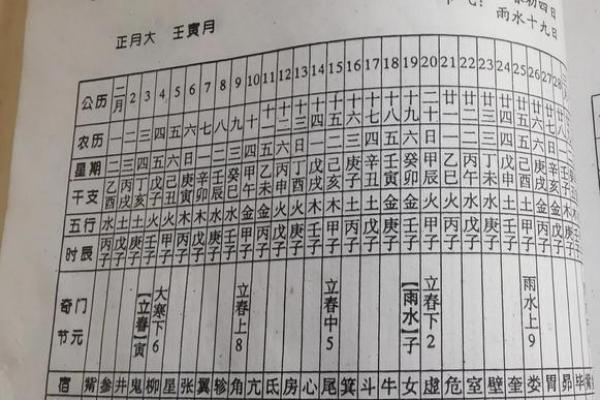 初四日
雨水十九日
正月大 壬寅月
公历 二月 2 3 4 5 6 7 8 9 10 11 12 13 14 15 16 17 18 19 20 21 22 23 24 25 26 27 28
农历 一 二 三 四 五 六 七 八 九 十 十一 十二 十三 十四 十五 十六 十七 十八 十九 二十 廿一 廿二 廿三 廿四 廿五 廿六 廿七 廿八
星期 二 三 四 五 六 日 一 二 三 四 五 六 日 一 二 三 四 五 六 日 一 二 三 四 五 六 日 一
干支 乙酉 丙戌 丁亥 戊子 己丑 庚寅 辛卯 壬辰 癸巳 甲午 乙未 丙申 丁酉 戊戌 己亥 庚子 辛丑 壬寅 癸卯 甲辰 乙巳 丙午 丁未 戊申 己酉 庚戌 辛亥 壬子
五行 水 土 土 火 火 木 木 水 水 金 金 火 火 木 木 土 土 金 金 火 火 水 水 土 土 金 金 木
时辰 丙子 戊子 庚子 壬子 甲子 丙子 戊子 庚子 壬子 甲子 丙子 戊子 庚子 壬子 甲子 丙子 戊子 庚子 壬子 甲子 丙子 戊子 庚子 壬子 甲子 丙子 戊子 庚子
奇门节元 【立春】寅 大寒下6 立春上8 立春中5 【雨水】子 立春下2 雨水上9
宿 觜 参 井 鬼 柳 星 张 翼 轸 角 亢 氐 房 心 尾 箕 斗 牛 女 虚 危 室 壁 奎 娄 胃 昴 毕